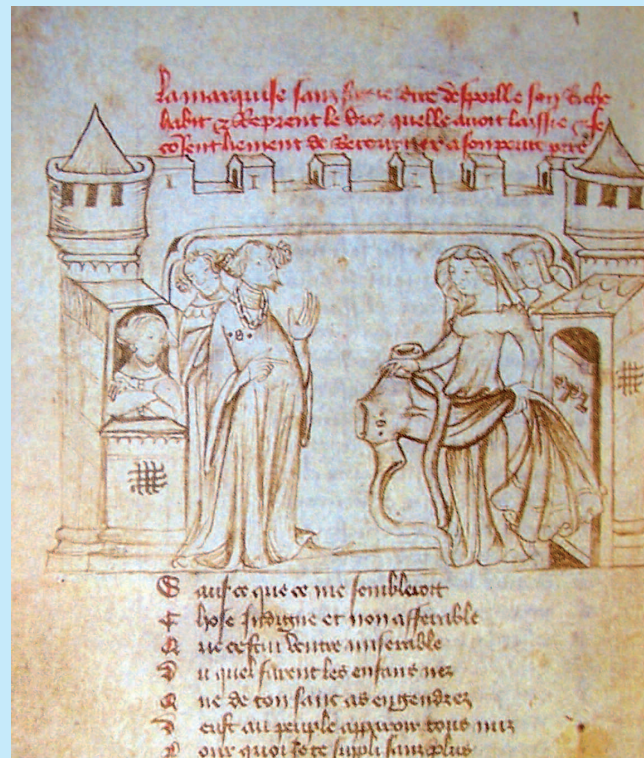 La marquise sanz dire despoille son riche
habit & reprent le quelle avoit laissie & se
consent de retourner a son
Sauf ce que ce me sembleroit
Chose indigne et non afferable
Que cestui ventre miserable
Du quel furent les enfans nez
Que de ton sanc as engendrez
Deust au peuple apparoir tous nuz
Pour quoi je te suppli sanz plus